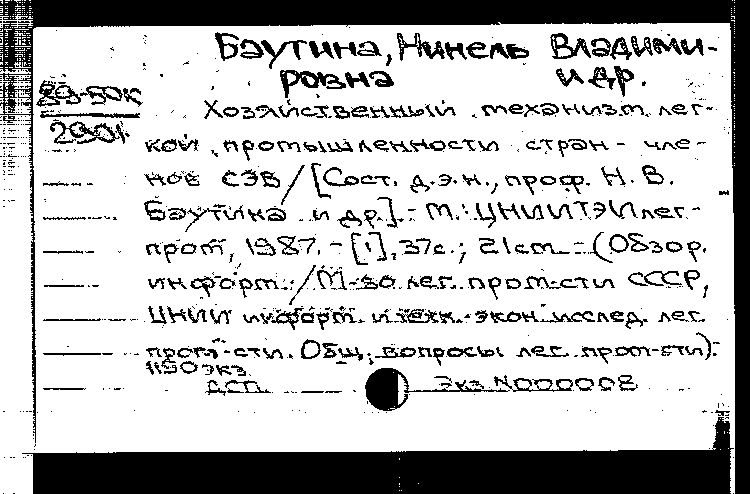 Баутина, Нинель Владими-
ровна и др.
89-50к
2901
Хозяйственный механизм лег-
кой промышленности стран - чле-
нов СЭВ / [Сост. д.э.н., проф. Н. В.
Баутина и др.]. - М.: ЦНИИТЭИлег-
пром, 1987. - [1], 37с.; 21см. - (Обзор.
информ. / М-во лег. пром-сти СССР,
ЦНИИ информ. и техн.-экон. исслед. лег.
пром-сти. Общ. вопросы лег. пром-сти).
1150 экз.
ДСП Экз. N000008